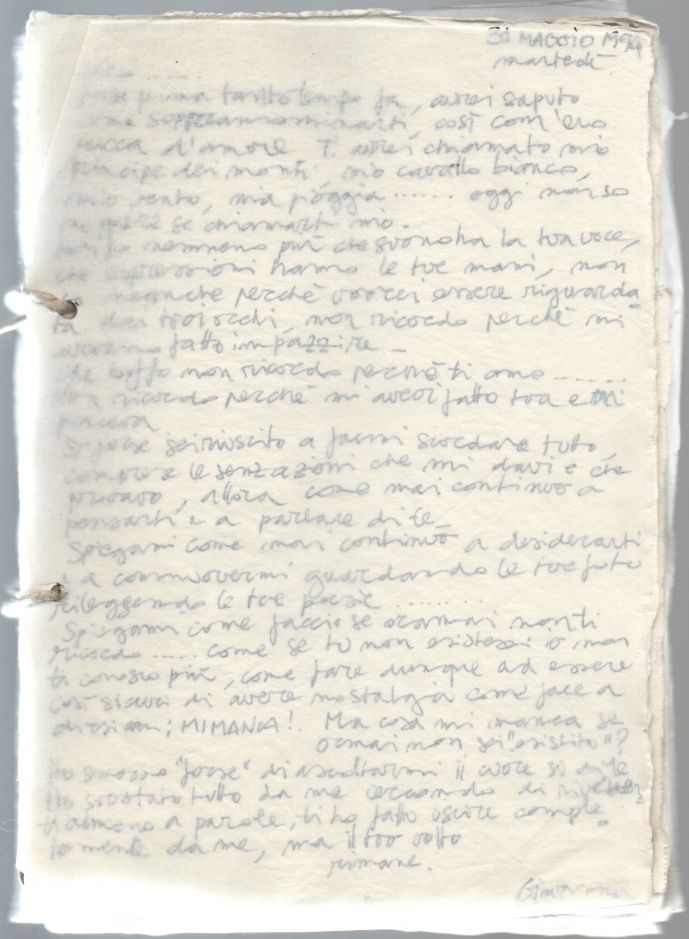 31 MAGGIO 1994
martedì
......
prima tanto tempo fa, avrei saputo
soprannominarti, così com'ero
d'amore. Ti avrei chiamato mio
principe dei monti, mio cavallo bianco,
mio vento, mia pioggia ...... oggi non so
se chiamarti mio.
nemmeno più che suono ha la tua voce,
che espressioni hanno le tue mani, non
neanche perché vorrei essere riguarda-
ta dai tuoi occhi, non ricordo perché mi
avevano fatto impazzire _
che buffo non ricordo perché ti amo .......
Non ricordo perché mi avevi fatto tua e mi
piaceva
Se forse sei riuscito a farmi scordare tutto,
comprese le senzazioni che mi davi e che
provavo, allora come mai continuo a
pensarti e a parlare di te_
Spiegami come mai continuo a desiderarti
e a commuovermi guardando le tue foto
rileggendo le tue poesie ........
Spiegami come faccio se oramai non ti
ricordo ...... come se tu non esistessi o non
ti conosco più, come fare dunque ad essere
così sicuri di avere nostalgia come face a
dirsi: MI MANCA! Ma cosa mi manca se
ormai non sei "esistito"?
Ho smesso "forse" di ascoltarmi il cuore su di te
Ho scostato tutto da me cercando di
almeno a parole, ti ho fatto uscire comple-
tamente da me, ma il tuo volto
rimane.
Giovanna